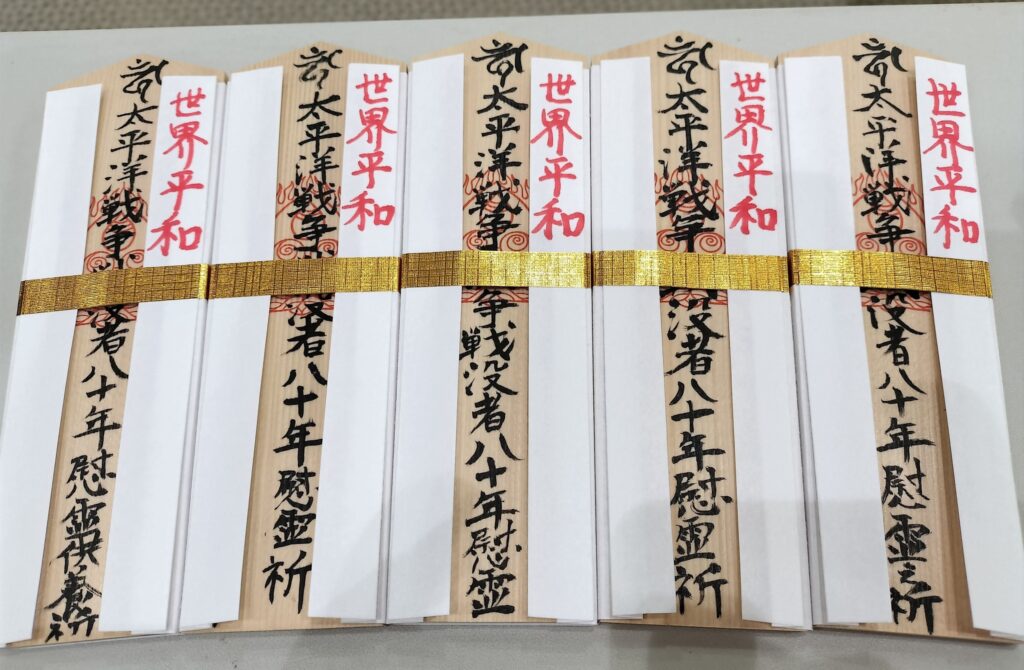 世界平和
太平洋戦争没者八十年慰霊之祈
世界平和
太平洋戦争没者八十年慰霊祈
世界平和
太平洋戦争争戦没者八十年慰霊
世界平和
太平洋戦争没者八十年慰霊祈
世界平和
太平洋戦争没者八十年慰霊供養祈